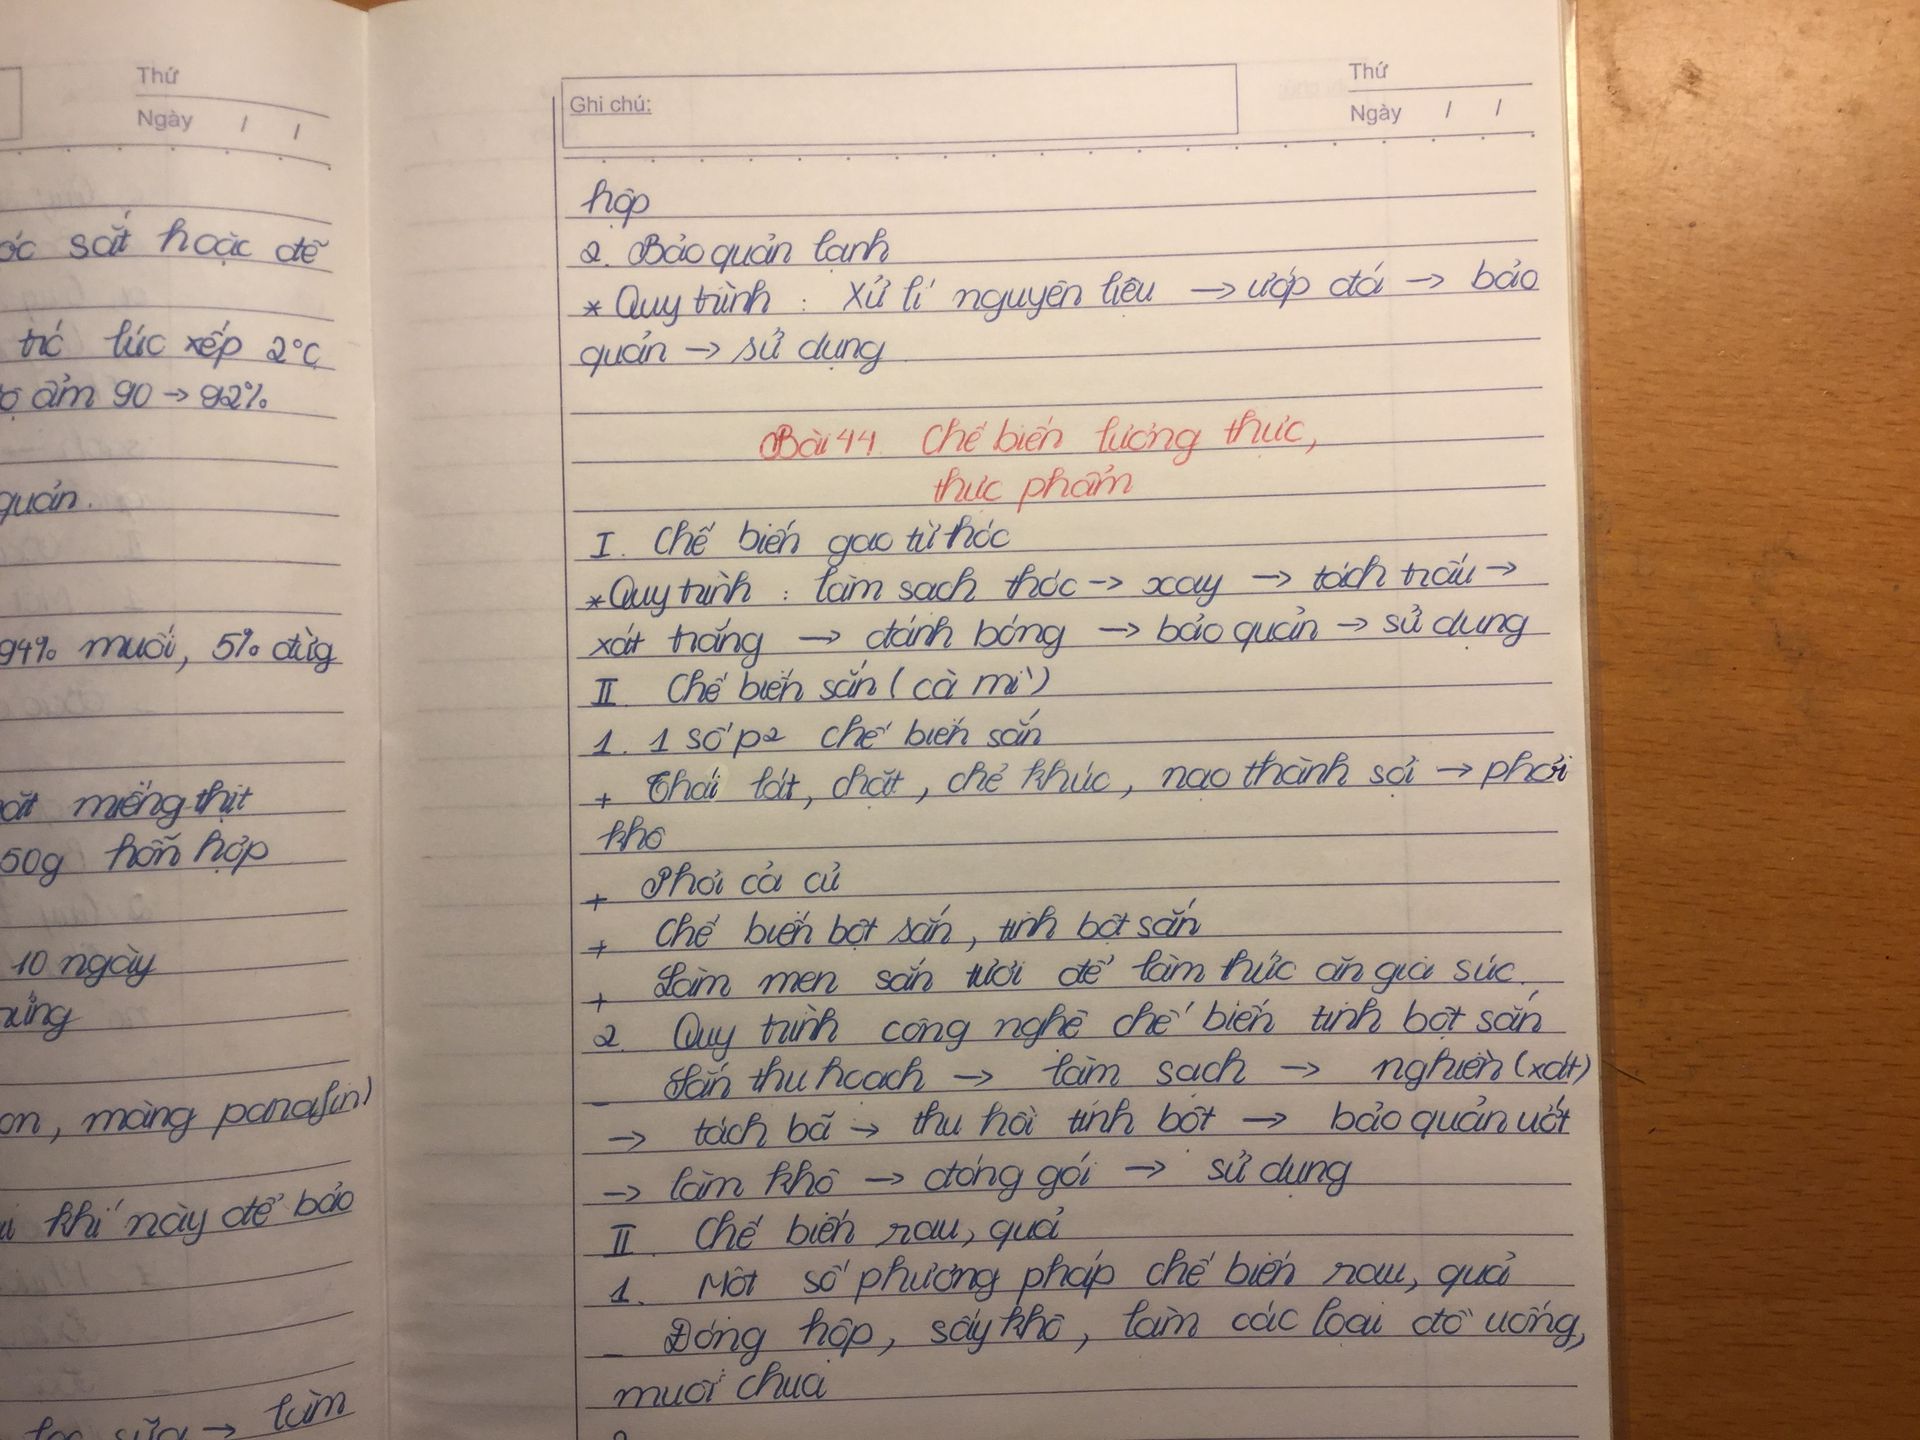 Thứ
Ngày / /
sắt hoặc để
lúc xếp 2°C
ẩm 90 → 92%
quản.
94% muối, 5% đừg
miếng thịt
50g hỗn hợp
10 ngày
màng parafin)
khí này để bảo
sữa → làm
Ghi chú:
Thứ
Ngày / /
hộp
2. Bảo quản lạnh
* Quy trình : Xử lí nguyên liệu → ướp đá → bảo
quản → sử dụng
Bài 44. Chế biến lương thực,
thực phẩm
I. Chế biến gạo từ thóc
* Quy trình : làm sạch thóc → xay → tách trấu →
xát trắng → đánh bóng → bảo quản → sử dụng
II Chế biến sắn (cà mì)
1. 1 số p2 chế biến sắn
+ Thái lát, chặt, chẻ khúc, nạo thành sợi → phơi
khô
+ Phơi cả củ
+ Chế biến bột sắn, tinh bột sắn
+ Làm men sắn tươi để làm thức ăn gia súc.
2. Quy trình công nghệ chế biến tinh bột sắn
- Sắn thu hoạch → làm sạch → nghiền (xát)
→ tách bã → thu hồi tinh bột → bảo quản ướt
→ làm khô → đóng gói → sử dụng
II. Chế biến rau, quả
1. Một số phương pháp chế biến rau, quả
- Đóng hộp, sấy khô, làm các loại đồ uống,
muối chua